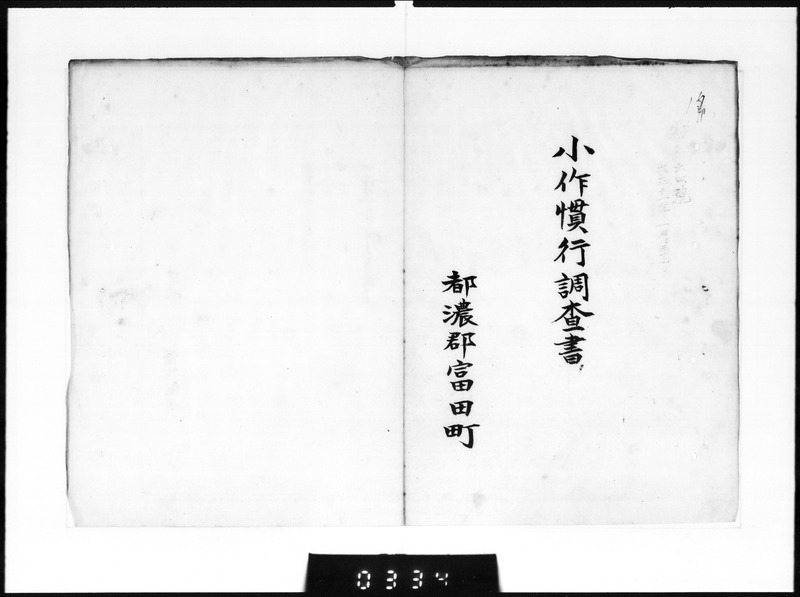 小作慣行調査書
都濃郡富田町
0334